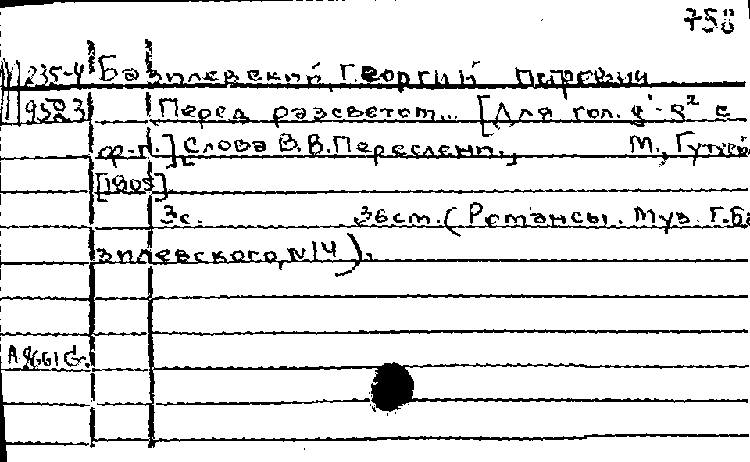 758
235-4 Базилевский, Георгий Петрович
9523 Перед разсветом... [Для гол. g¹-g² с
ф-п.] Слова В.В.Пересленп., М., Гутхей
[1905]
3с. 36см. (Романсы. Муз. Г.Ба
зилевского, N14).